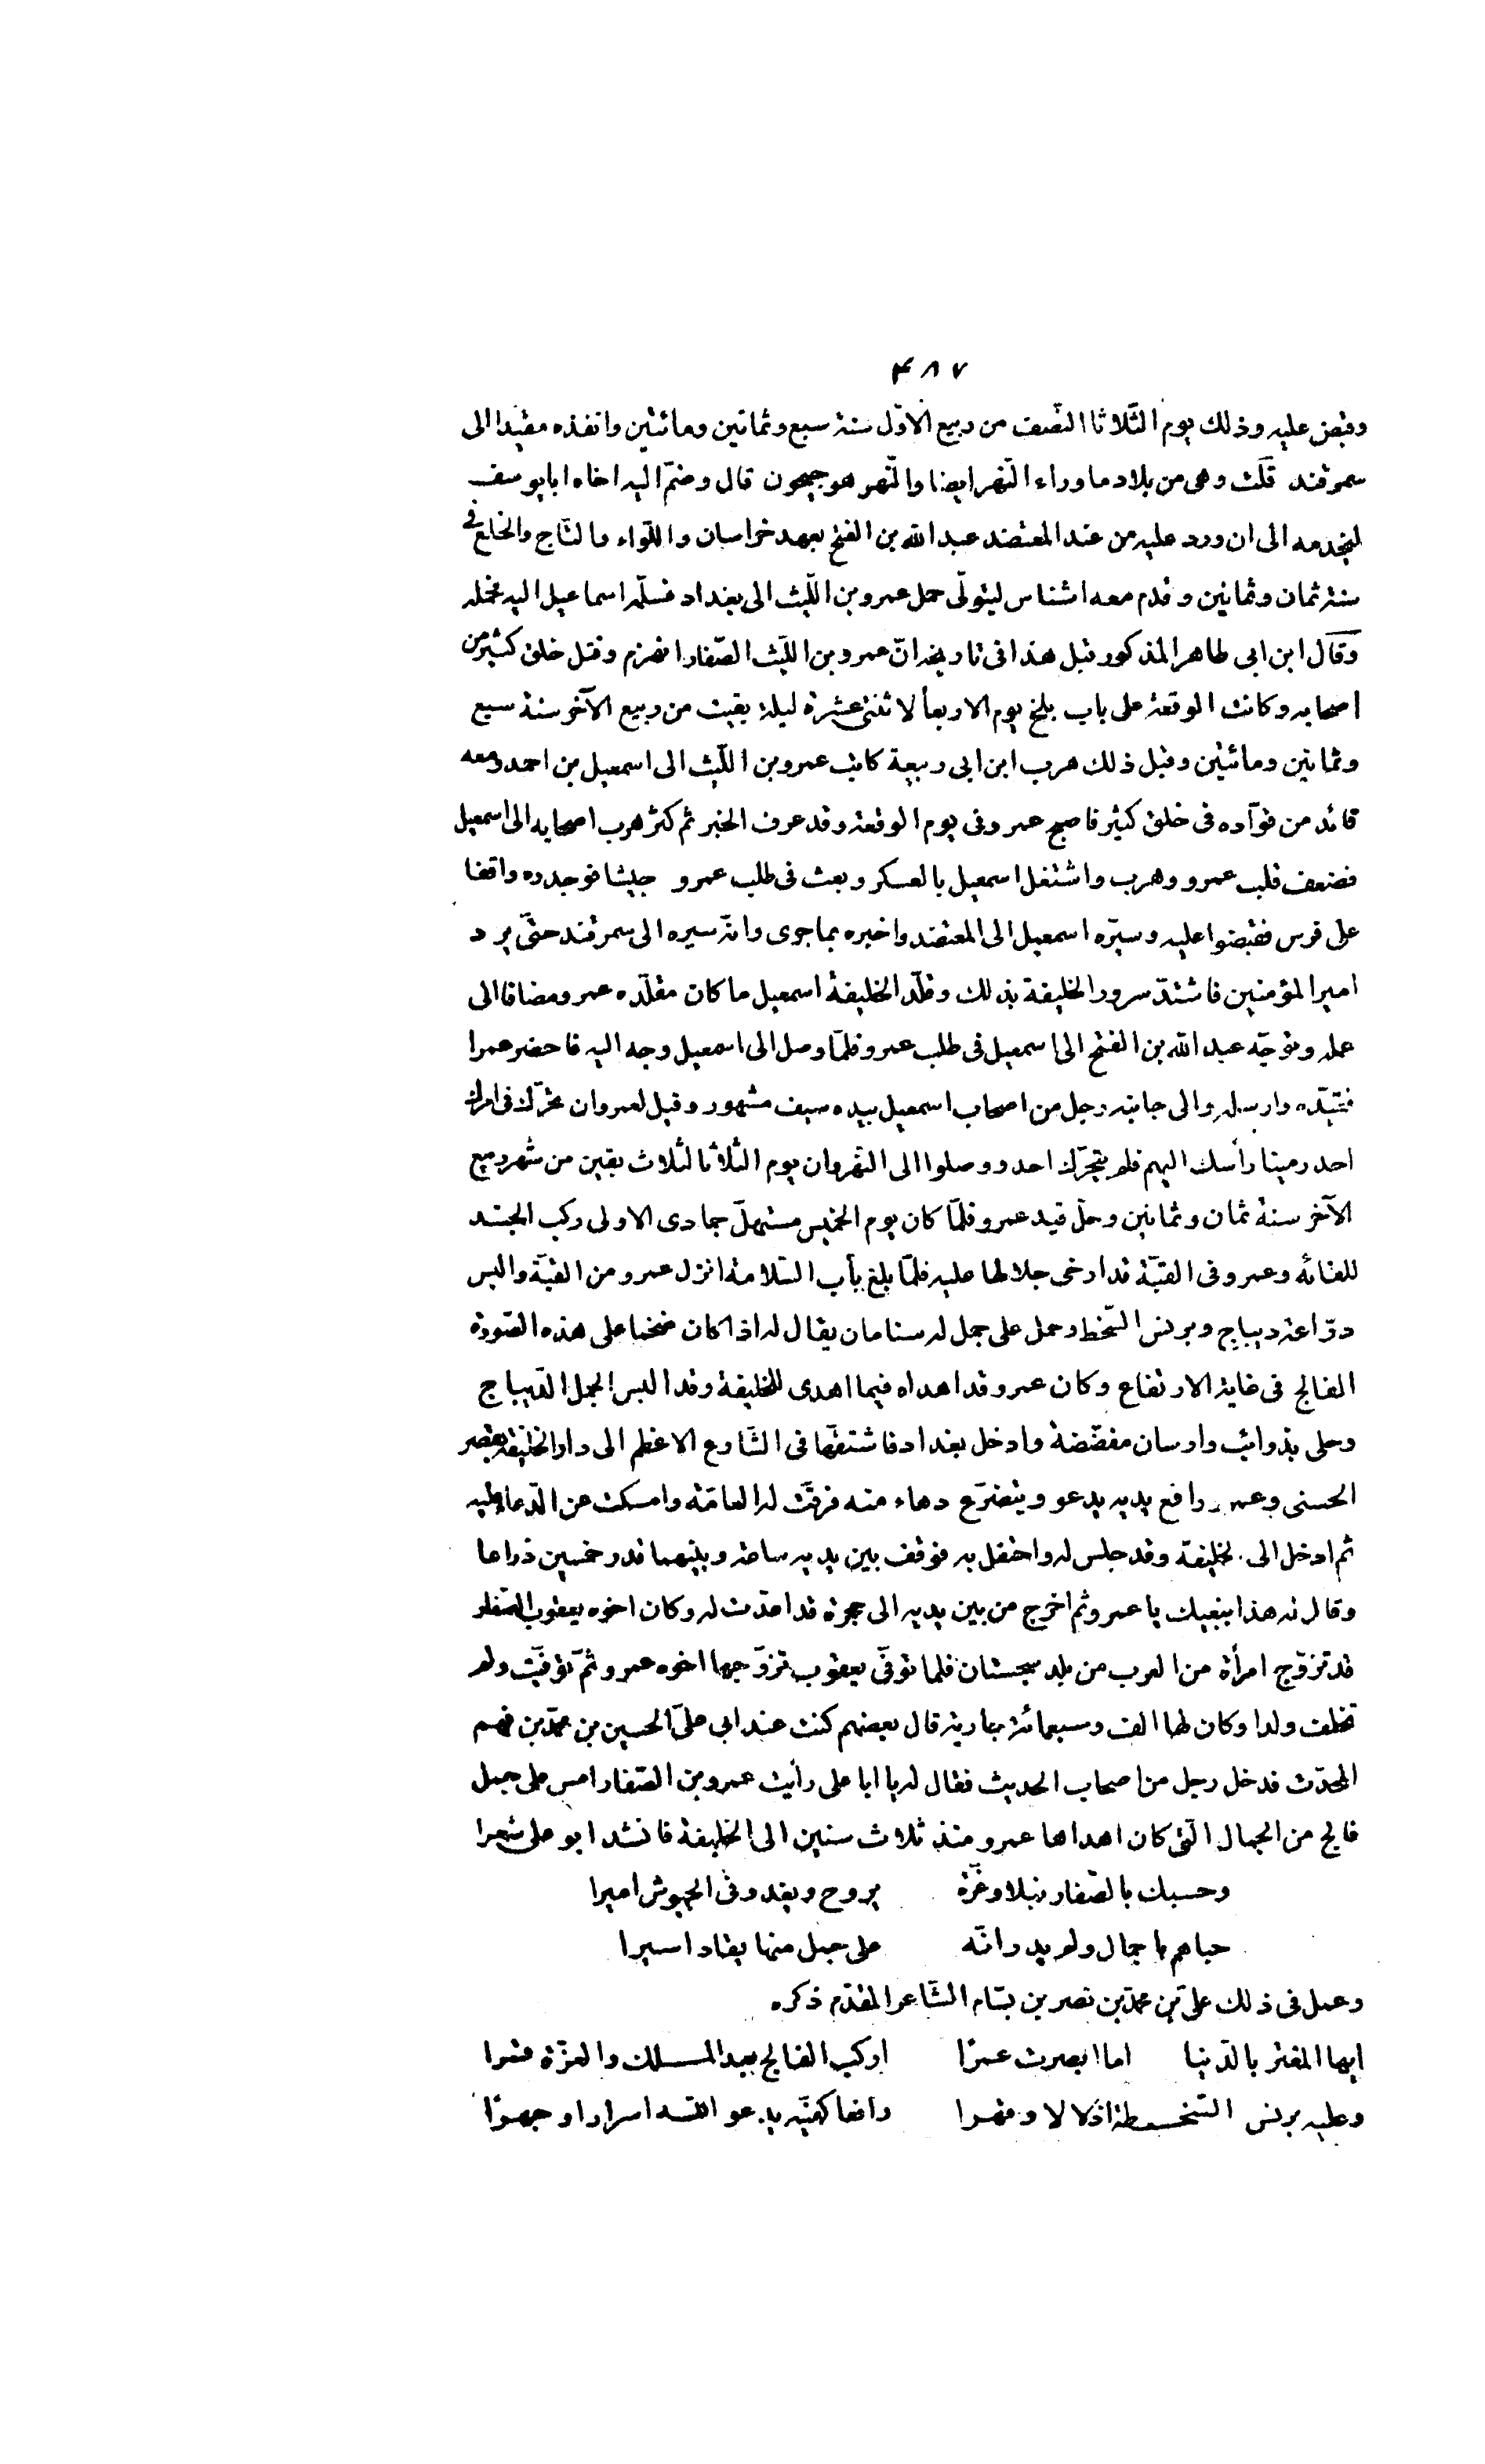 ۴۸۷
وقبض عليه وذلك يوم الثّلاثا النّصف من ربيع الاوّل سنة سبع وثمانين ومائتين وانفذه مقيدا الى
سمرقند قلت وهى من بلاد ماوراء النّهر ايضا والنّهر هو جيحون قال وضمّ اليه اخاه ابا يوسف
ليخدمه الى ان ورد عليه من عند المعتضد عبد الله بن الفتح بعهد خراسان واللّواء والتّاج والخلع فى
سنة ثمان وثمانين وقدم معه اشناس ليتولّى حمل عمرو بن اللّيث الى بغداد فسلّمه اسماعيل اليه فحمله
وقال ابن ابى طاهر المذكور قبل هذا فى تاريخه انّ عمرو بن اللّيث الصّفار انهزم وقتل خلق كثير من
اصحابه وكانت الوقعة على باب بلخ يوم الاربعأ لاثنتى عشرة ليلة بقيت من ربيع الآخر سنة سبع
وثمانين ومائتين وقبل ذلك هرب ابن ابى ربيعة كاتب عمرو بن اللّيث الى اسمعيل بن احمد ومعه
قائد من قوّاده فى خلق كثير فاصبح عمرو فى يوم الوقعة وقد عرف الخبر ثم كثر هرب اصحابه الى اسمعيل
فضعف قلب عمرو وهرب واشتغل اسمعيل بالعسكر وبعث فى طلب عمرو جيشا فوجدوه واقفا
على فرس فقبضوا عليه وسيّره اسمعيل الى المعتضد واخبره بما جرى وانّه سيره الى سمرقند حتّى يرد
امير المؤمنين فاشتدّ سرور الخليفة بذلك وقلّد الخليفة اسمعيل ما كان مقلّده عمرو مضافا الى
عمله وتوجّه عبد الله بن الفتح الى اسمعيل فى طلب عمرو فلمّا وصل الى اسمعيل وجه اليه فاحضر عمرا
فقيّده وارسله والى جانبه رجل من اصحاب اسمعيل بيده سيف مشهور وقيل لعمرو ان تحرّك فى امرك
احد رمينا رأسك اليهم فلم يتحرّك احد ووصلوا الى النّهروان يوم الثّلاثا لثلاث بقين من شهر ربيع
الآخر سنة ثمان وثمانين وحلّ قيد عمرو فلمّا كان يوم الخميس مستهلّ جمادى الاولى ركب الجند
للقائه وعمرو فى القبّة قد ارخى جلالها عليه فلمّا بلغ باب السّلامة انزل عمرو من القبّة والبس
درّاعة ديباج وبرنس السّخط وحمل على جمل له سنامان يقال له اذا كان ضخما على هذه الصّورة
الفالج فى غاية الارتفاع وكان عمرو قد اهداه فيما اهدى للخليفة وقد البس الجمل الدّيباج
وحلى بذوائب وارسان مفضّضة وادخل بغداد فاشتقّها فى الشّارع الاعظم الى دار الخليفة بقصر
الحسنى وعمرو رافع يديه يدعو ويتضرّع دهاء منه فرقّت له العامّة وامسكت عن الدّعا عليه
ثم ادخل الى الخليفة وقد جلس له واحتفل به فوقف بين يديه ساعة وبينهما قدر خمسين ذراعا
وقال له هذا ببغيك يا عمرو ثم اخرج من بين يديه الى حجرة قد اعدّت له وكان اخوه يعقوب الصّفار
قد تزوّج امرأة من العرب من بلد سجستان فلما توفّى يعقوب تزوّجها اخوه عمرو ثمّ توفّيت ولم
تخلف ولدا وكان لها الف وسبعمائة جارية قال بعضهم كنت عند ابى علىّ الحسين بن محمّد بن فهم
المحدّث فدخل رجل من اصحاب الحديث فقال له يا ابا على رأيت عمرو بن الصّفار امس على جمل
فالج من الجمال الّتى كان اهداها عمرو منذ ثلاث سنين الى الخليفة فانشد ابو على شعرا
وحسبك بالصّفار نبلا وعزّة يروح ويغدو فى الجيوش اميرا
حباهم باجمال ولم يدر انّه على جمل منها يقاد اسيرا
وعمل فى ذلك علىّ بن محمّد بن نصر بن بسّام الشّاعر المقدّم ذكره
ايها المغتر بالدّنيا اما ابصرت عمرًا اركب الفالج بعد المسلك والعزّة قسرا
وعليه برنس السّخطة اذلالا وقهرا رافعا كفيّه يدعو اللّه اسرارا وجهرًا